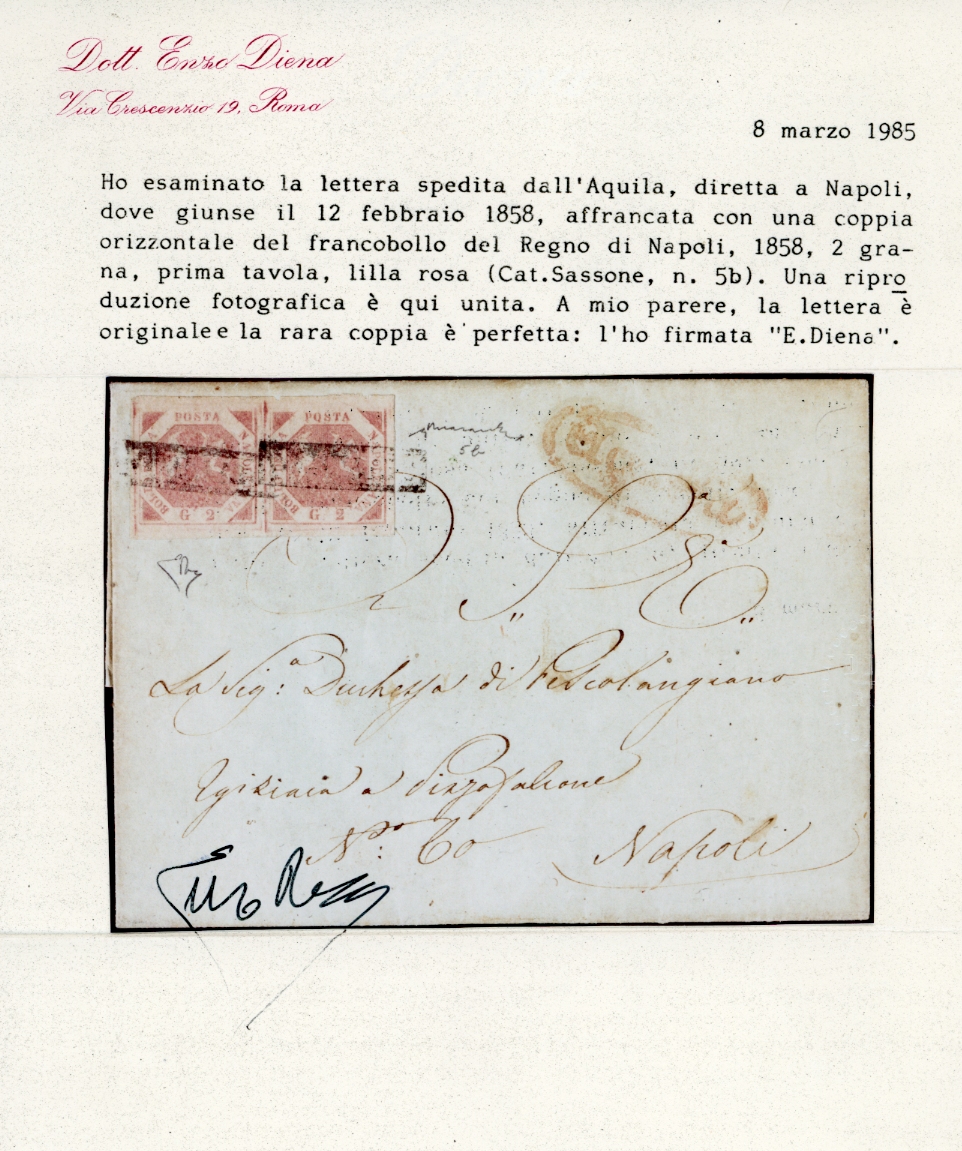 Dott. Enzo Diena
Via Crescenzio 19, Roma
8 marzo 1985
Ho esaminato la lettera spedita dall'Aquila, diretta a Napoli,
dove giunse il 12 febbraio 1858, affrancata con una coppia
orizzontale del francobollo del Regno di Napoli, 1858, 2 gra-
na, prima tavola, lilla rosa (Cat.Sassone, n. 5b). Una ripro
duzione fotografica è qui unita. A mio parere, la lettera è
originale e la rara coppia è perfetta: l'ho firmata "E.Diena".
POSTA POSTA
G 2 G 2
5b
La Sig.a Duchessa di Pescolangiano
Egiziaca a Pizzofalcone
N.ro 60 Napoli